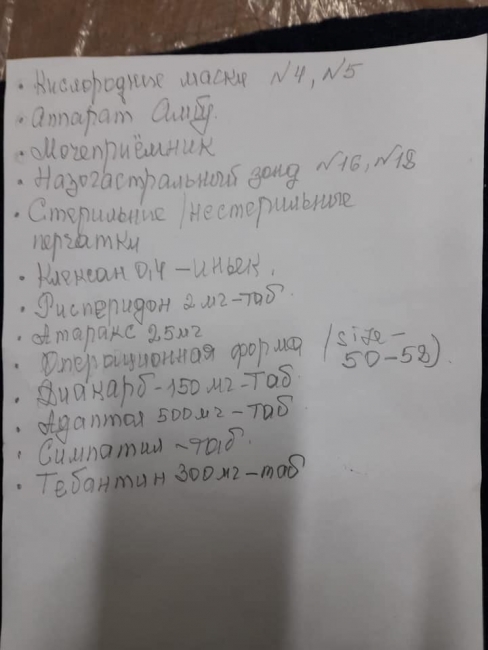 • Кислородные маски №4, №5
• Аппарат Амбу.
• Мочеприёмник
• Назогастральный зонд №16, №18
• Стерильные /нестерильные
перчатки
• Клексан 0,4 – иньек.
• Рисперидон 2 мг – таб.
• Атаракс 25мг
• Операционная форма /size –
50–58).
• Дианарб – 150 мг – таб.
• Адаптол 500мг – таб
• Симпатил – таб.
• Тебантин 300мг – таб